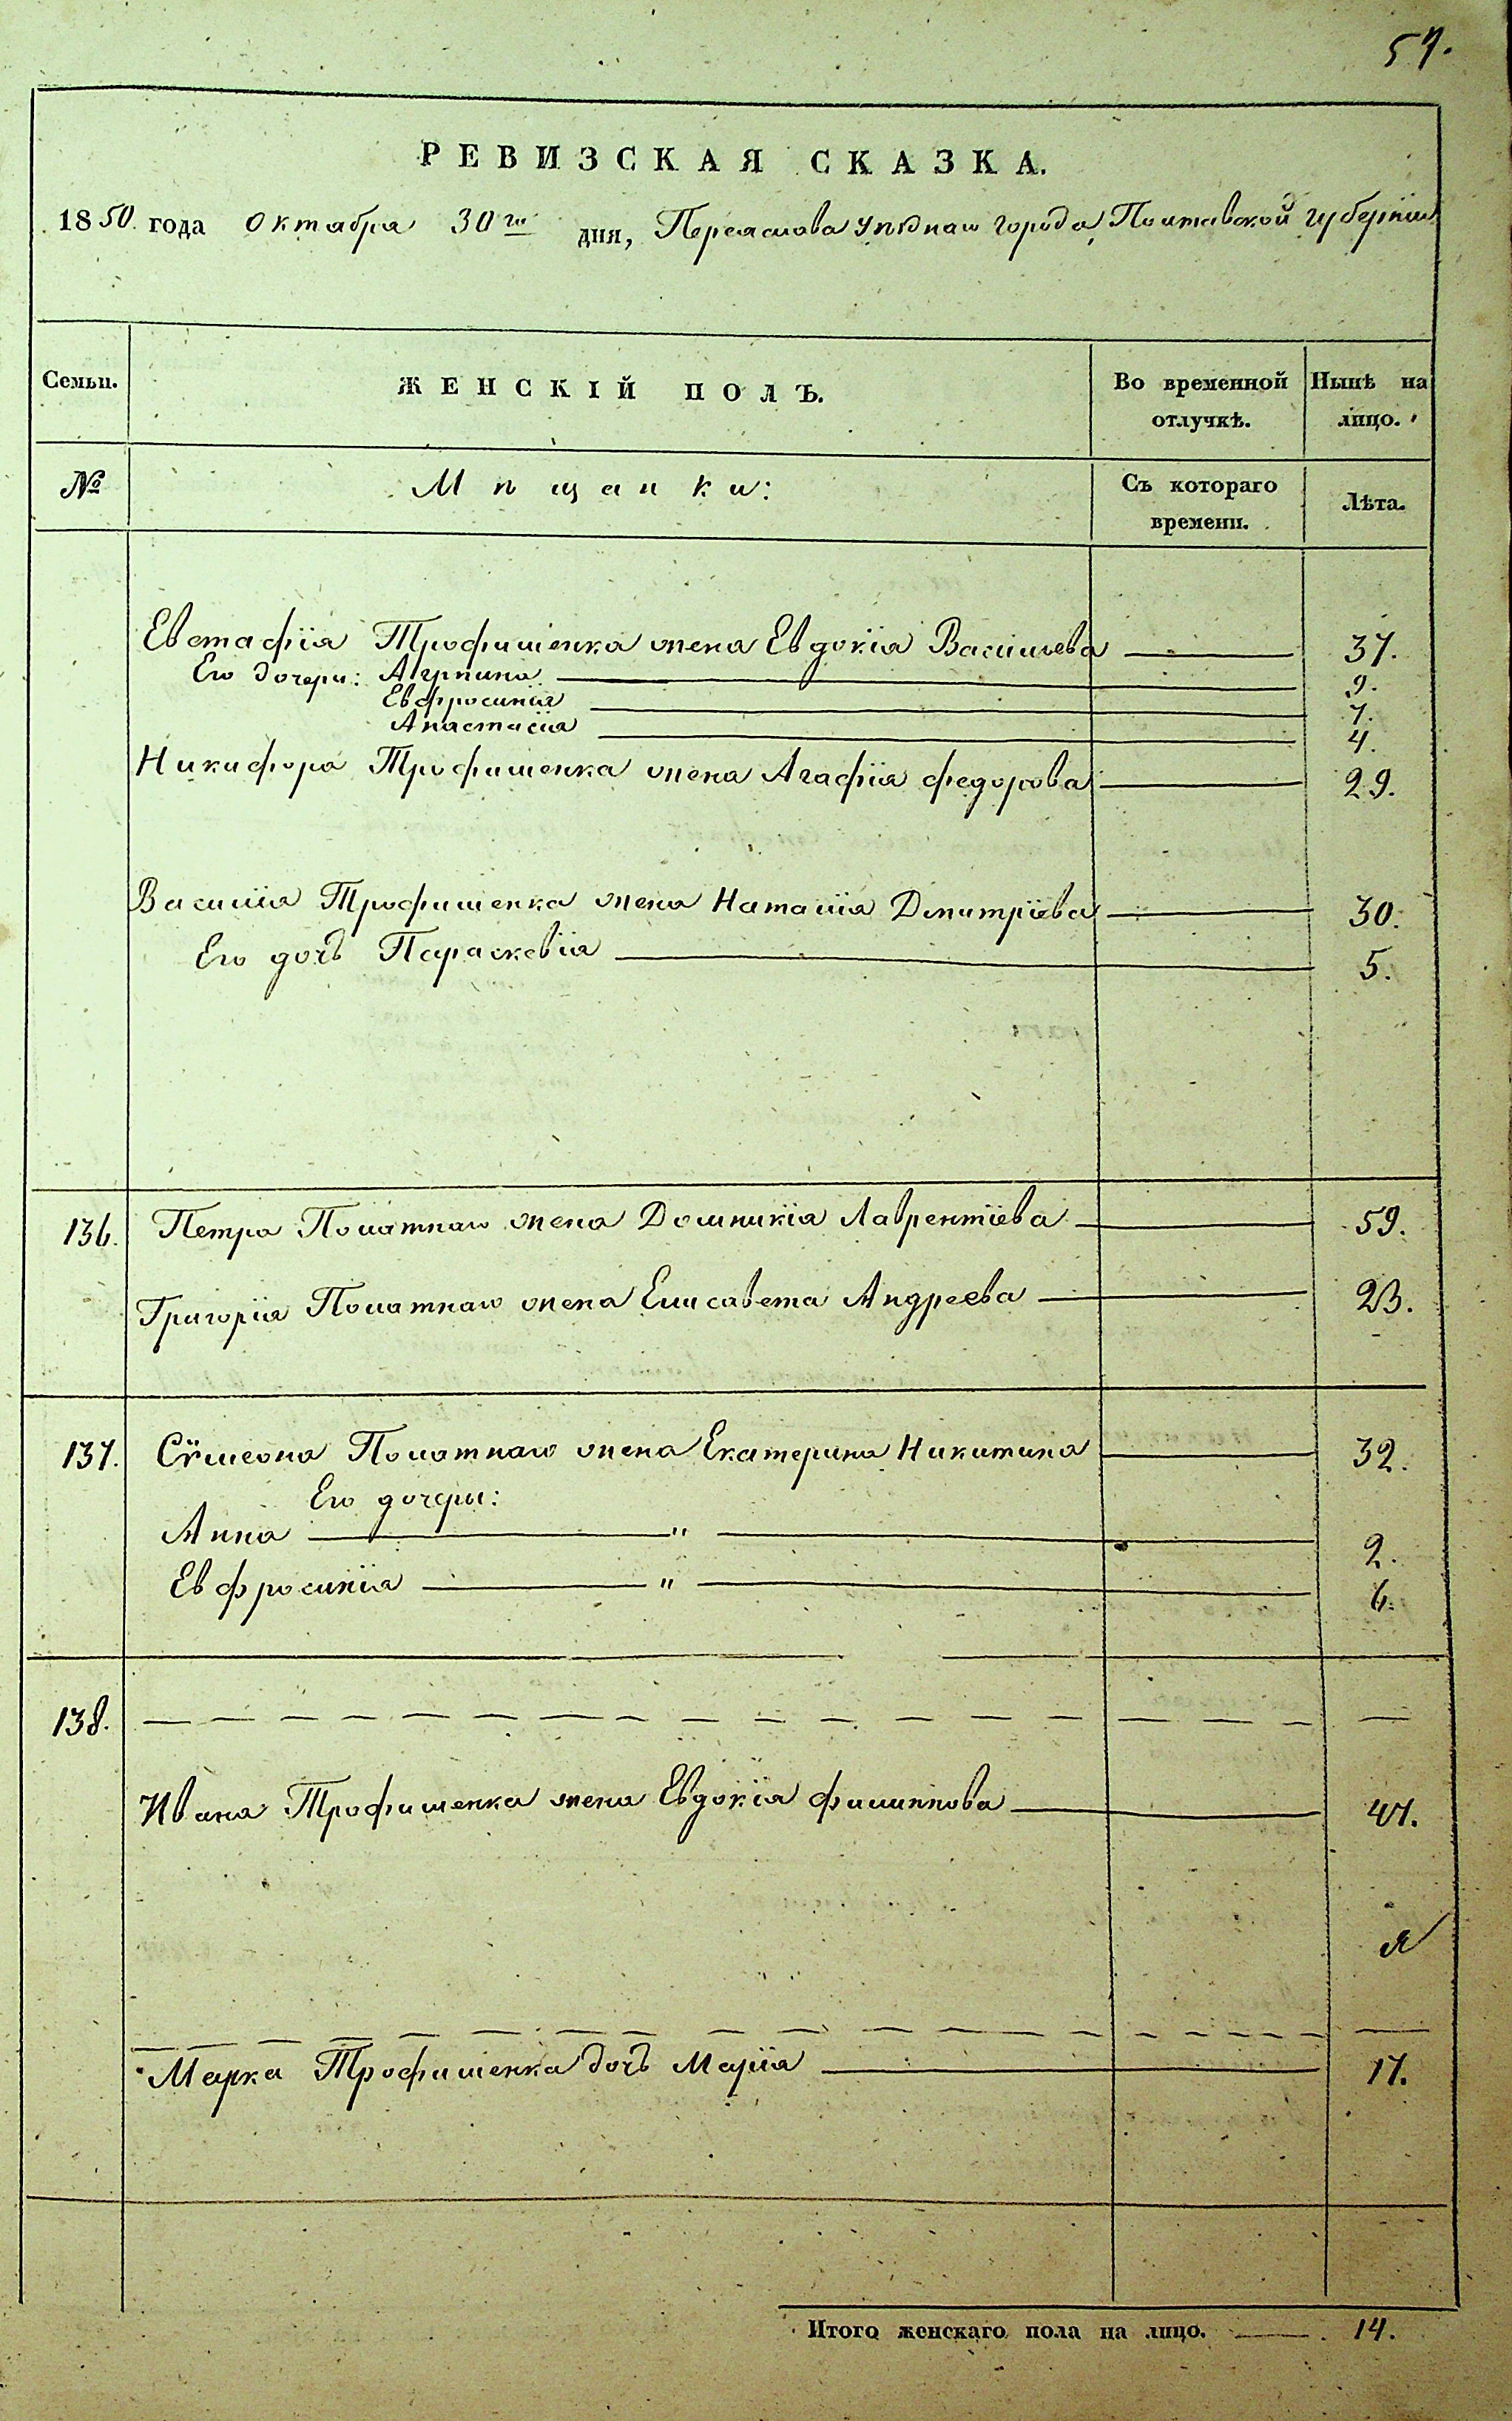 57.
РЕВИЗСКАЯ СКАЗКА.
1850 года октября 30го дня, Переяслова уѣднаго города, Полтавской губерніи
Семьи. ЖЕНСКІЙ ПОЛЪ. Во временной отлучкѣ. Нынѣ на лицо.
№ Мѣщанки: Съ котораго времени. Лѣта.
Евстафія Трофименка жена Евдокія Васильева 37.
Его дочери: Агрпина 9.
Евфросинія 7.
Анастасія 4.
Никифора Трофименка жена Агафія федорова 29.
Василія Трофименка жена Наталія Дмитріева 30.
Его дочь Параскевія 5.
136. Петра Полатнаго жена Домникія Лаврентіева 59.
Григорія Полатнаго жена Елисавета Андреева 23.
137. Сѵмеона Полатнаго жена Екатерина Никитина 32.
Его дочери:
Анна " 2.
Евфросинія " 6.
138.
Ивана Трофименка жена Евдокія филиппова 47.
Марка Трофименка дочь Марія 17.
Итого женскаго пола на лицо. 14.